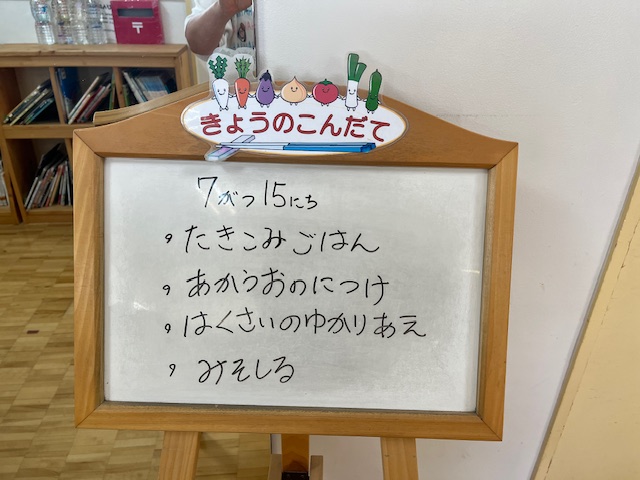 きょうのこんだて
7がつ15にち
・たきこみごはん
・あかうおのにつけ
・はくさいのゆかりあえ
・みそしる